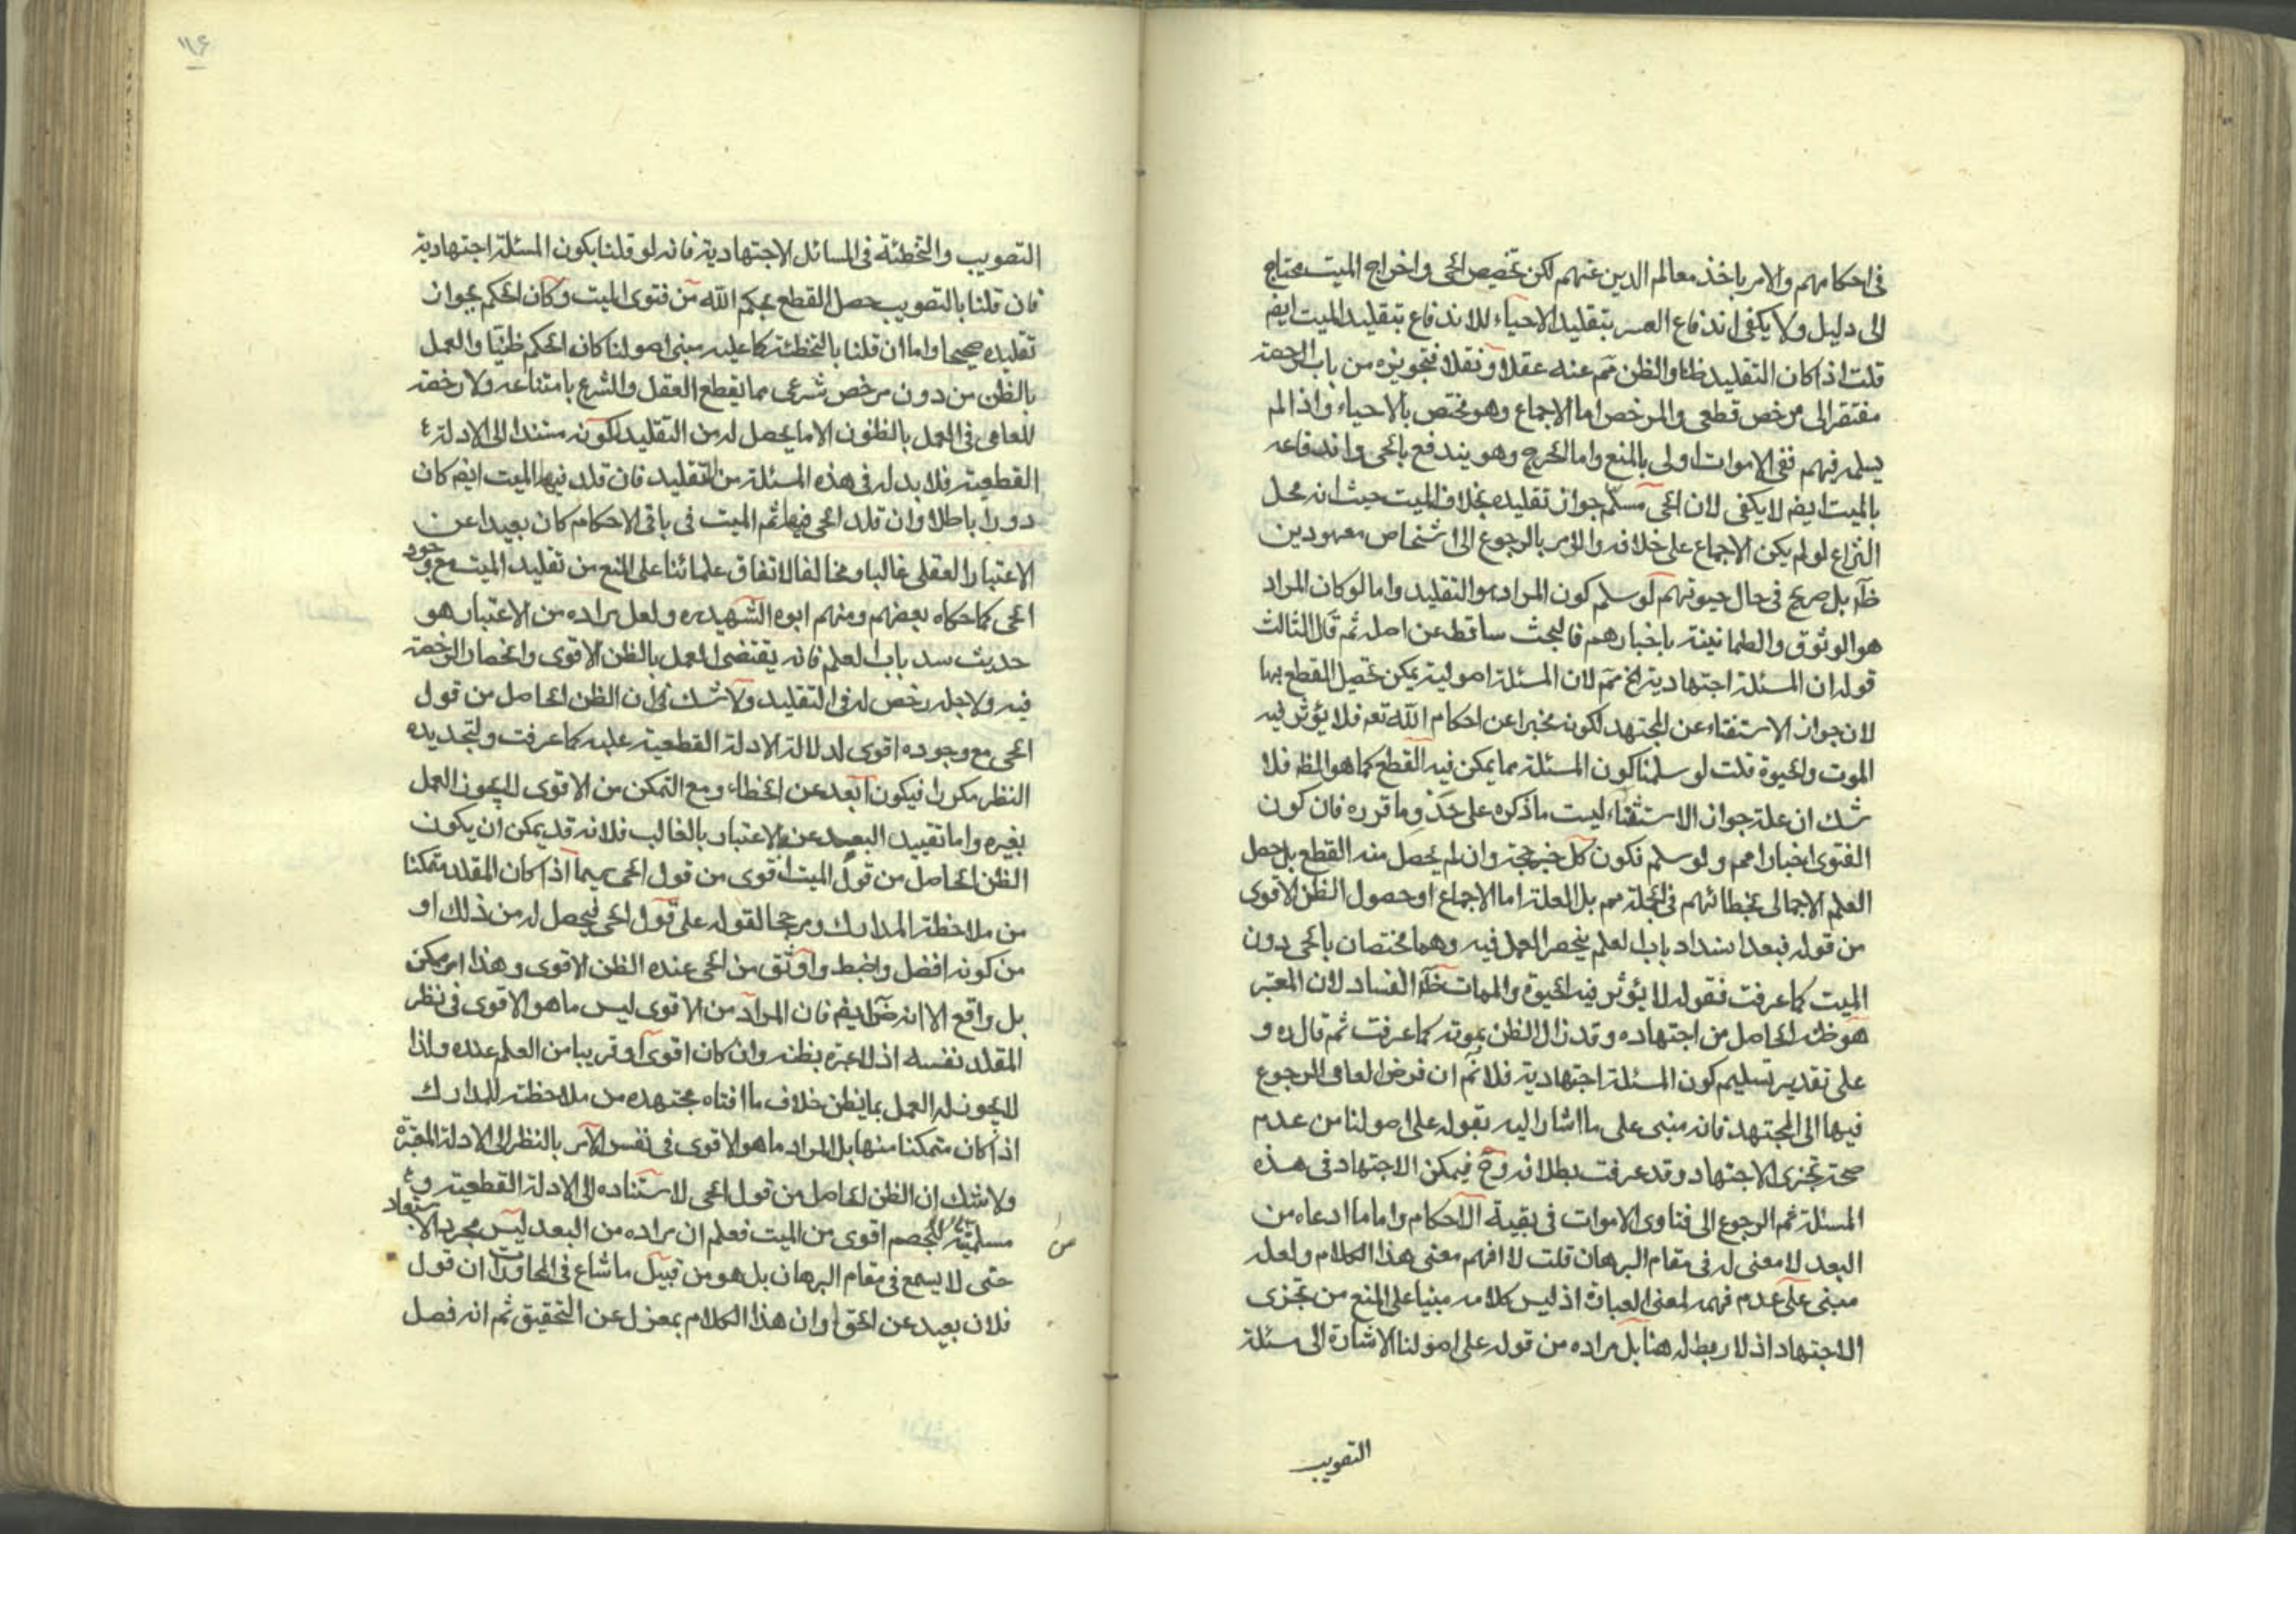 فى احكامهم والامر باخذ معالم الدين عنهم لكن تخصيص الحى واخراج الميت محتاج
الى دليل ولا يكفى اندفاع العسر بتقليد الاحياء للاندفاع بتقليد الميت ايضم
قلت اذا كان التقليد ظنا والظن مم عنه عقلا ونقلا فتجويزه من باب الرخصة
مفتقر الى مرخص قطعى والمرخص اما الاجماع وهو مختص بالاحياء واذا لم
يسلم فيهم ففى الاموات اولى بالمنع واما الحرج وهو يندفع بالحى واندفاعه
بالميت ايضم لا يكفى لان الحى مسلم جواز تقليده بخلاف الميت حيث انه محل
النزاع لو لم يكن الاجماع على خلافه والامر بالرجوع الى اشخاص معهودين
ظاَ بل صريح فى حال حيوتهم لو سلم كون المراد هو التقليد واما لو كان المراد
هو الوثوق والطمانينة باخبارهم فالبحث ساقط عن اصله ثم قال الثالث
قوله ان المسئلة اجتهادية الخ مم لان المسئلة اصولية يمكن تحصيل القطع بها
لان جواز الاستفتاء عن المجتهد لكونه مخبرا عن احكام الله تعم فلا يؤثر فيه
الموت والحيوة قلت لو سلمنا كون المسئلة مما يمكن فيه القطع كما هو الظ فلا
شك ان علة جواز الاستفتاء ليست ما ذكره على حَذْوِ ما قرره فان كون
الفتوى اخبارا مم ولو سلم فكون كل خبر حجة وان لم يحصل منه القطع بل حصل
العلم الاجمالى بخطائهم فى الجملة مم بل العلة اما الاجماع او حصول الظن الاقوى
من قوله فبعد انسداد باب العلم ينحصر العمل فيه وهما مختصان بالحى دون
الميت كما عرفت فقوله لا يؤثر فيه الحيوة والممات ظاَ الفساد لان المعتبر
هو ظنه الحاصل من اجتهاده وقد زال الظن بموته كما عرفت ثم قال ره و
على تقدير تسليم كون المسئلة اجتهادية فلا نم ان فرض العامى الرجوع
فيها الى المجتهد فانه مبنى على ما اشار اليه بقوله على اصولنا من عدم
صحة تجزى الاجتهاد وقد عرفت بطلانه وح فيمكن الاجتهاد فى هذه
المسئلة ثم الرجوع الى فتاوى الاموات فى بقية الاحكام واما ما ادعاه من
البعد لا معنى له فى مقام البرهان قلت لا افهم معنى هذا الكلام ولعله
مبنى على عدم فهمه لمعنى العبارة اذ ليس كلامه مبنيا على المنع من تجزى
الاجتهاد اذ لا ربط له هنا بل مراده من قوله على اصولنا الاشارة الى مسئلة
التصويب
١١۶
التصويب والتخطئة فى المسائل الاجتهادية فانه لو قلنا بكون المسئلة اجتهادية
فان قلنا بالتصويب حصل القطع بحكم الله من فتوى الميت وكان الحكم بجواز
تقليده صحيحا واما ان قلنا بالتخطئة كما عليه مبنى اصولنا كان الحكم ظنيا والعمل
بالظن من دون مرخص شرعى مما يقطع العقل والشرع بامتناعه ولا رخصة
للعامى فى العمل بالظنون الا ما يحصل له من التقليد لكونه مستندا الى الادلة
القطعية فلا بد له فى هذه المسئلة من التقليد فان قلد فيها الميت ايضم كان
دورا باطلا وان قلد الحى فيها ثم الميت فى باقى الاحكام كان بعيدا عن
الاعتبار العقلى غالبا ومخالفا لاتفاق علمائنا على المنع من تقليد الميت مع وجود
الحى كما حكاه بعضهم ومنهم ابوه الشهيد ره ولعل مراده من الاعتبار هو
حديث سد باب العلم فانه يقتضى العمل بالظن الاقوى وانحصار الرخصة
فيه ولاجله رخص له فى التقليد ولا شك فى ان الظن الحاصل من قول
الحى مع وجوده اقوى لدلالة الادلة القطعية عليه كما عرفت ولتجديده
النظر مكررا فيكون ابعد عن الخطاء ومع التمكن من الاقوى لا يجوز العمل
بغيره واما تقييد البعيد عن الاعتبار بالغالب فلانه قد يمكن ان يكون
الظن الحاصل من قول الميت اقوى من قول الحى سيما اذا كان المقلد متمكنا
من ملاحظة المدارك ومرجحا لقوله على قول الحى ليحصل له من ذلك او
من كونه افضل واضبط واوثق من الحى عنده الظن الاقوى وهذا امر ممكن
بل واقع الا انه ايضم فان المراد من الاقوى ليس ما هو الاقوى فى نظر
المقلد نفسه اذ لا عبرة بظنه وان كان اقوى او قريبا من العلم عنده ولذا
لا يجوز له العمل بما يظن خلاف ما افتاه مجتهده من ملاحظة المدارك
اذا كان متمكنا منها بل المراد ما هو الاقوى فى نفس الامر بالنظر الى الادلة المعتبرة
ولا شك ان الظن الحاصل من قول الحى لاستناده الى الادلة القطعية و
مسلميته للخصم اقوى من الميت فعلم ان مراده من البعد ليس مجرد الاستبعاد
حتى لا يسمع فى مقام البرهان بل هو من قبيل ما شاع فى المحاورات ان قول
فلان بعيد عن الحق وان هذا الكلام بمعزل عن التحقيق ثم انه فصل